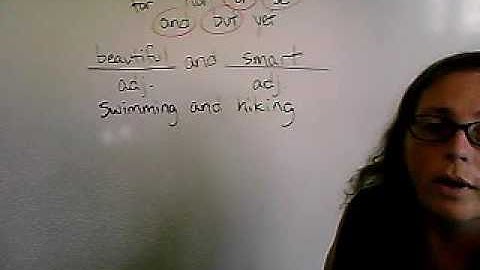 for nor or so
and but yet
beautiful and smart
adj. adj
swimming and hiking